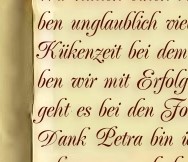 ben unglaublich vie
Kükenzeit bei dem
ben wir mit Erfolg
geht es bei den Fo
Dank Petra bin i